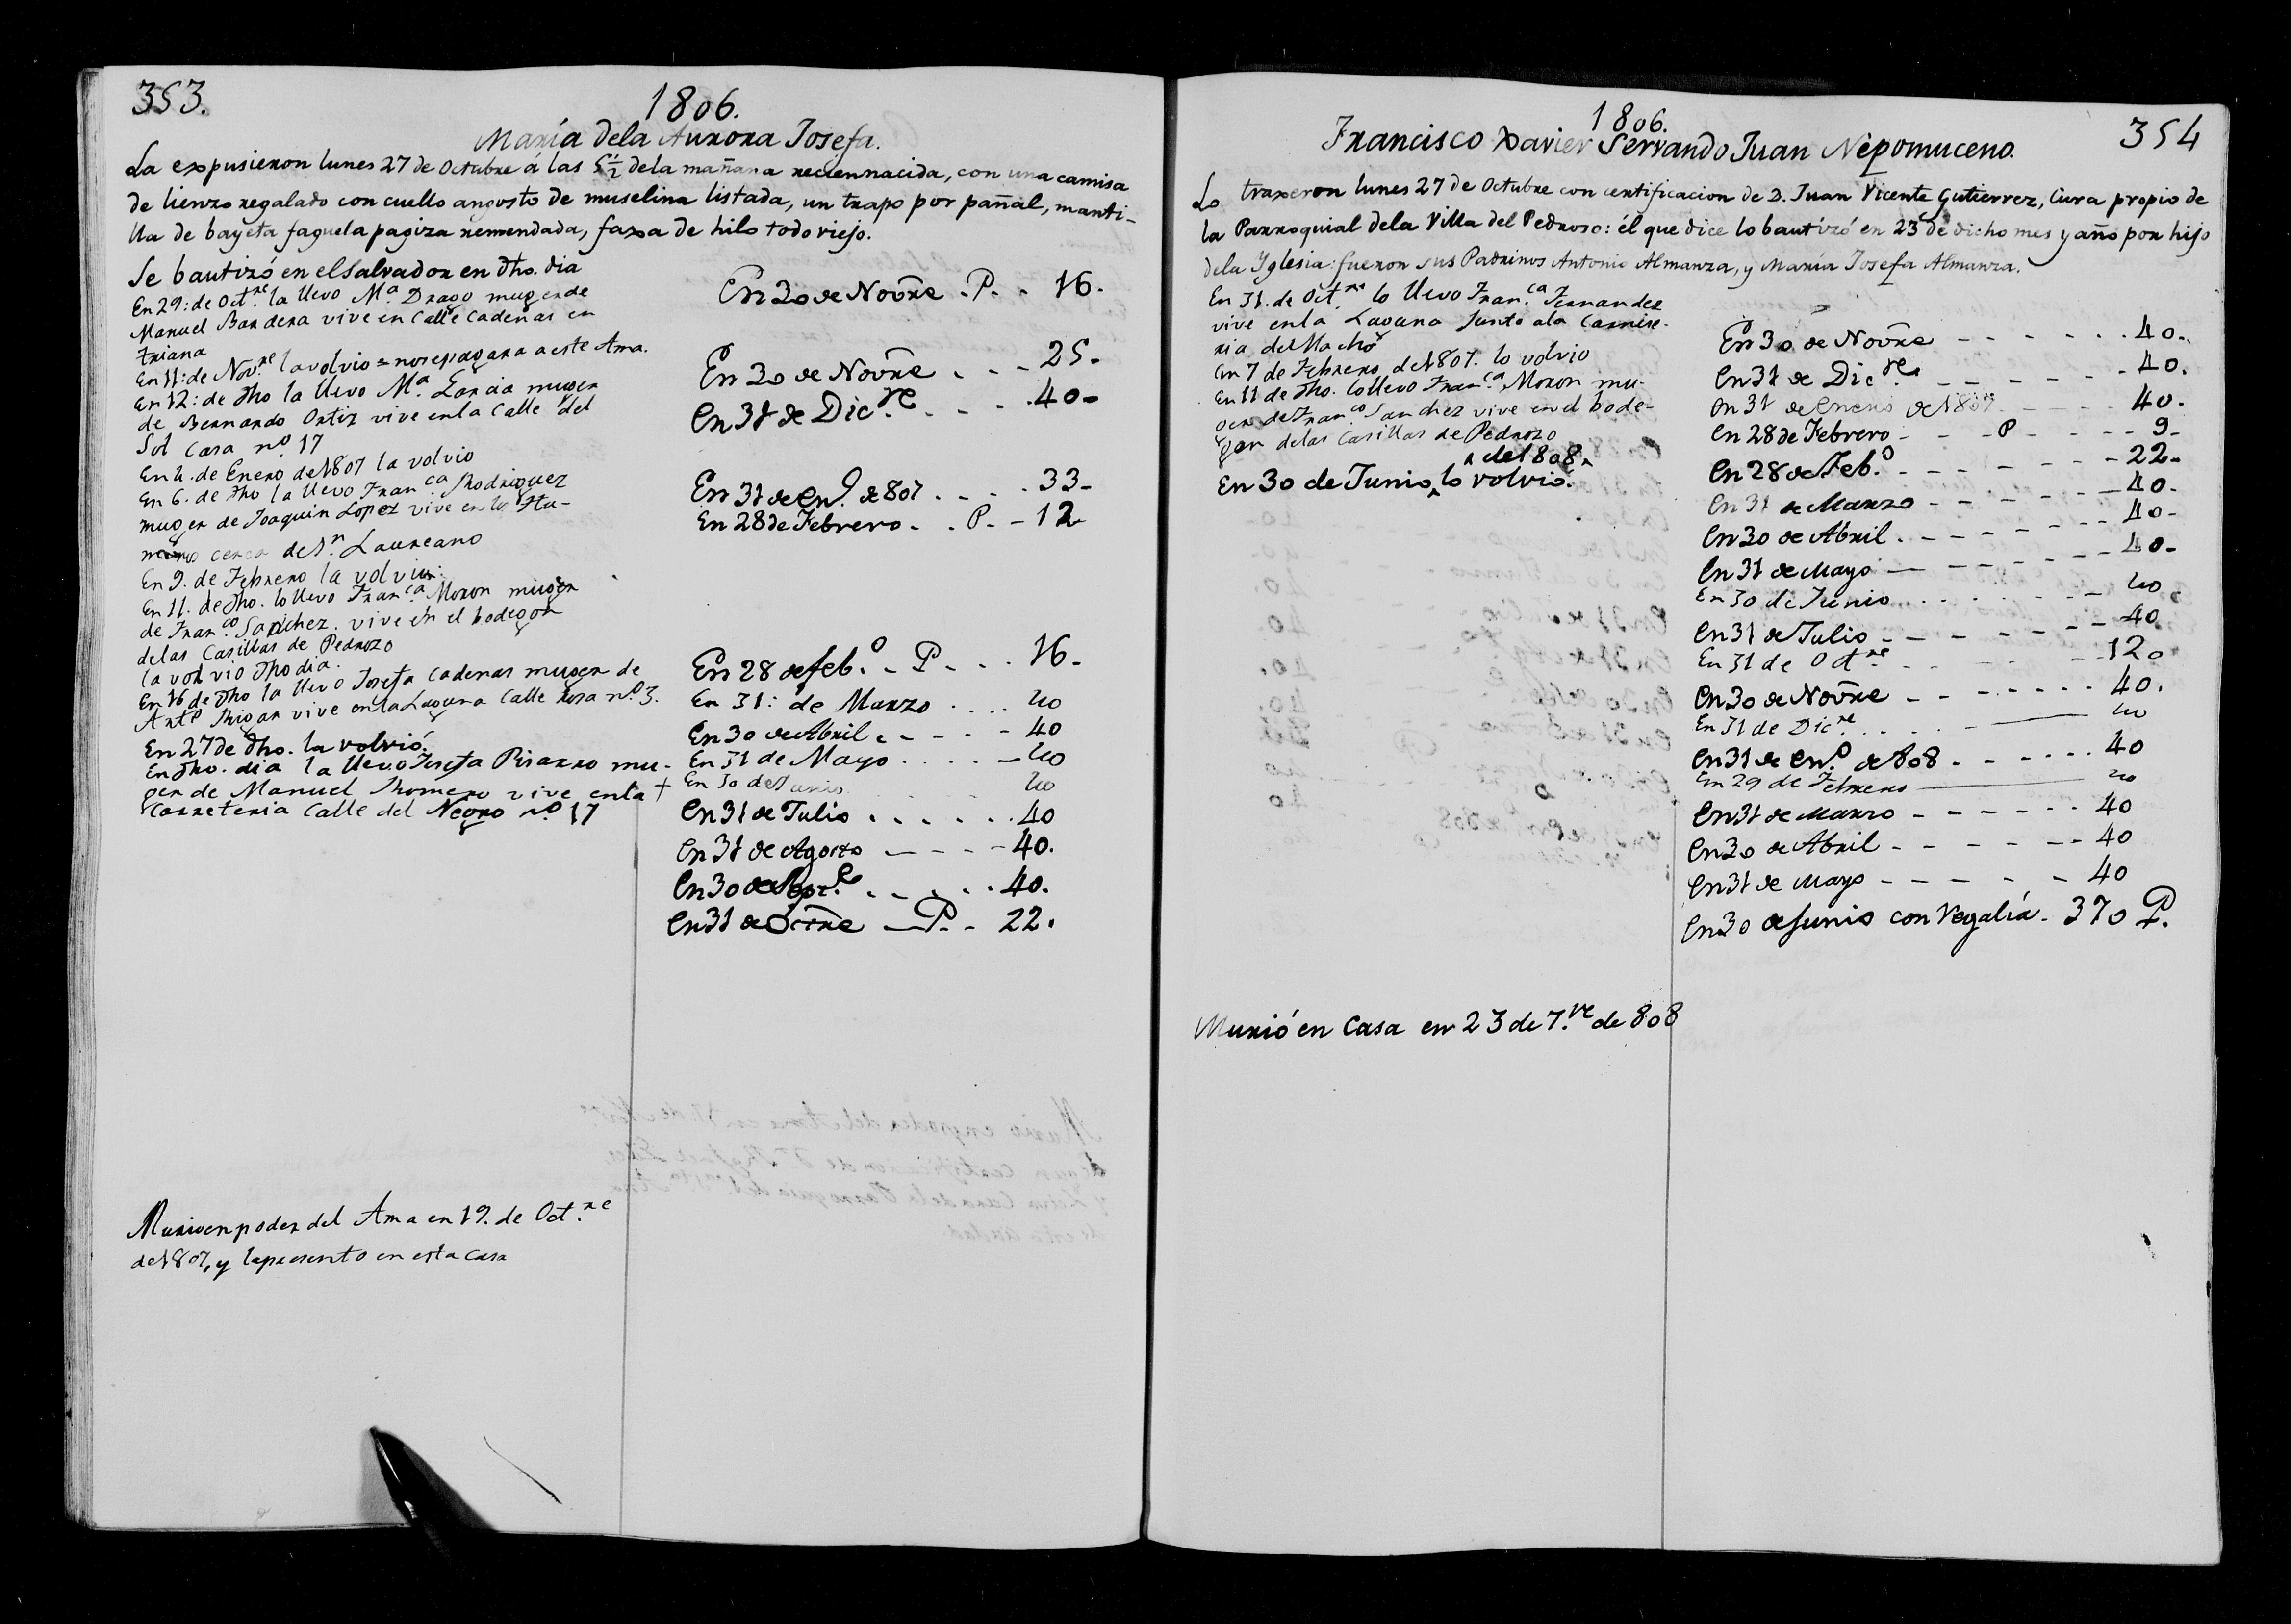 353.
1806.
María dela Aurora Josefa.
La expusieron lunes 27 de Octubre á las 5½ dela mañana reciennacida, con una camisa
de lienzo regalado con cuello angosto de muselina listada, un trapo por pañal, manti-
lla de bayeta faguela pagiza remendada, faxa de hilo todo viejo.
Se bautizó en el Salvador en dho. dia
En 29: de Oct.re la llevo M.a Drago muger de
Manuel Bandera vive en Calle Cadenas en
triana
En 11: de Nov.re la volvio = no se pagara a este Ama.
En 12: de dho la llevo M.a Garcia muger
de Bernardo Ortiz vive en la Calle del
Sol Casa n.o 17
En 4. de Enero de 1807 la volvio
En 6. de dho la llevo Fran.ca Rhodriguez
muger de Joaquin Lopez vive en los
cerca de S.n Laureano
En 9. de Febrero la volvio.
En 11. de dho. lo llevo Fran.ca Moron muger
de Fran.co Sanchez. vive en el bodegon
delas Casillas de Pedrozo
la volvio dho dia.
En 16 de dho la llevo Josefa Cadenas muger de
Ant.o vive en la Laguna Calle Rosa n.o 3.
En 27 de dho. la volvió.
En dho. dia la llevo Josefa Pisarro mu-
ger de Manuel Rhomero vive en la +
Carreteria Calle del Negro n.o 17
En 30 de Novre . P. . 16.
En 30 de Novre . . . 25.
En 31 de Dic.re . . . . 40.
En 31 de En.o de 807 . . . . 33.
En 28 de Febrero . . P. . 12
En 28 de feb.o . P. . . . 16.
En 31: de Marzo . . . . 40
En 30 de Abril . . . . . 40
En 31 de Mayo . . . . . 40
En 30 de Junio . . . . 40
En 31 de Julio . . . . . . 40
En 31 de Agosto - - - - 40.
En 30 de Sept.e . . . . . 40.
En 31 de Octre - P. - 22.
Murio en poder del Ama en 19. de Oct.re
de 1807, y la presento en esta casa
1806.
354
Francisco Xavier Servando Juan Nepomuceno.
Lo traxeron lunes 27 de Octubre con certificacion de D. Juan Vicente Gutierrez, Cura propio de
la Parroquial dela Villa del Pedroso: él que dice lo bautizó en 23 de dicho mes y año por hijo
dela Yglesia: fueron sus Padrinos Antonio Almanza, y María Josefa Almanza.
En 31. de Oct.re lo llevo Fran.ca Fernandez
vive en la Laguna Junto ala Carnise-
ria del Macho
En 7 de Febrero de 1807. lo volvio
En 11 de dho. lo llevo Fran.ca Moron mu-
ger de Fran.co Sanchez vive en el bode-
gon delas Casillas de Pedrozo
de 1808
En 30 de Junio lo volvió.
En 30 de Novre - - - - - - 40.
En 31 de Dic.re - - - - - - 40.
En 31 de Enero de 1807 - - - 40.
En 28 de Febrero - - - P - - - - 9.
En 28 de Feb.o - - - - - - - 22.
En 31 de Marzo - - - - - - - 40.
En 30 de Abril - - - - - - - 40.
En 31 de Mayo - - - - - - - 40.
En 30 de Junio . . . . . . . 40
En 31 de Julio - - - - - - - 40
En 31 de Oct.re - - - - - - 120
En 30 de Novre - - - - - - - 40.
En 31 de Dic.re . . . . 40
En 31 de En.o de 808 . . . . . . 40
En 29 de Febrero 40
En 31 de Marzo - - - - - - 40
En 30 de Abril - - - - - - 40
En 31 de Mayo - - - - - - 40
En 30 de Junio con Regalía - 370 P.
Murió en Casa en 23 de 7.re de 808